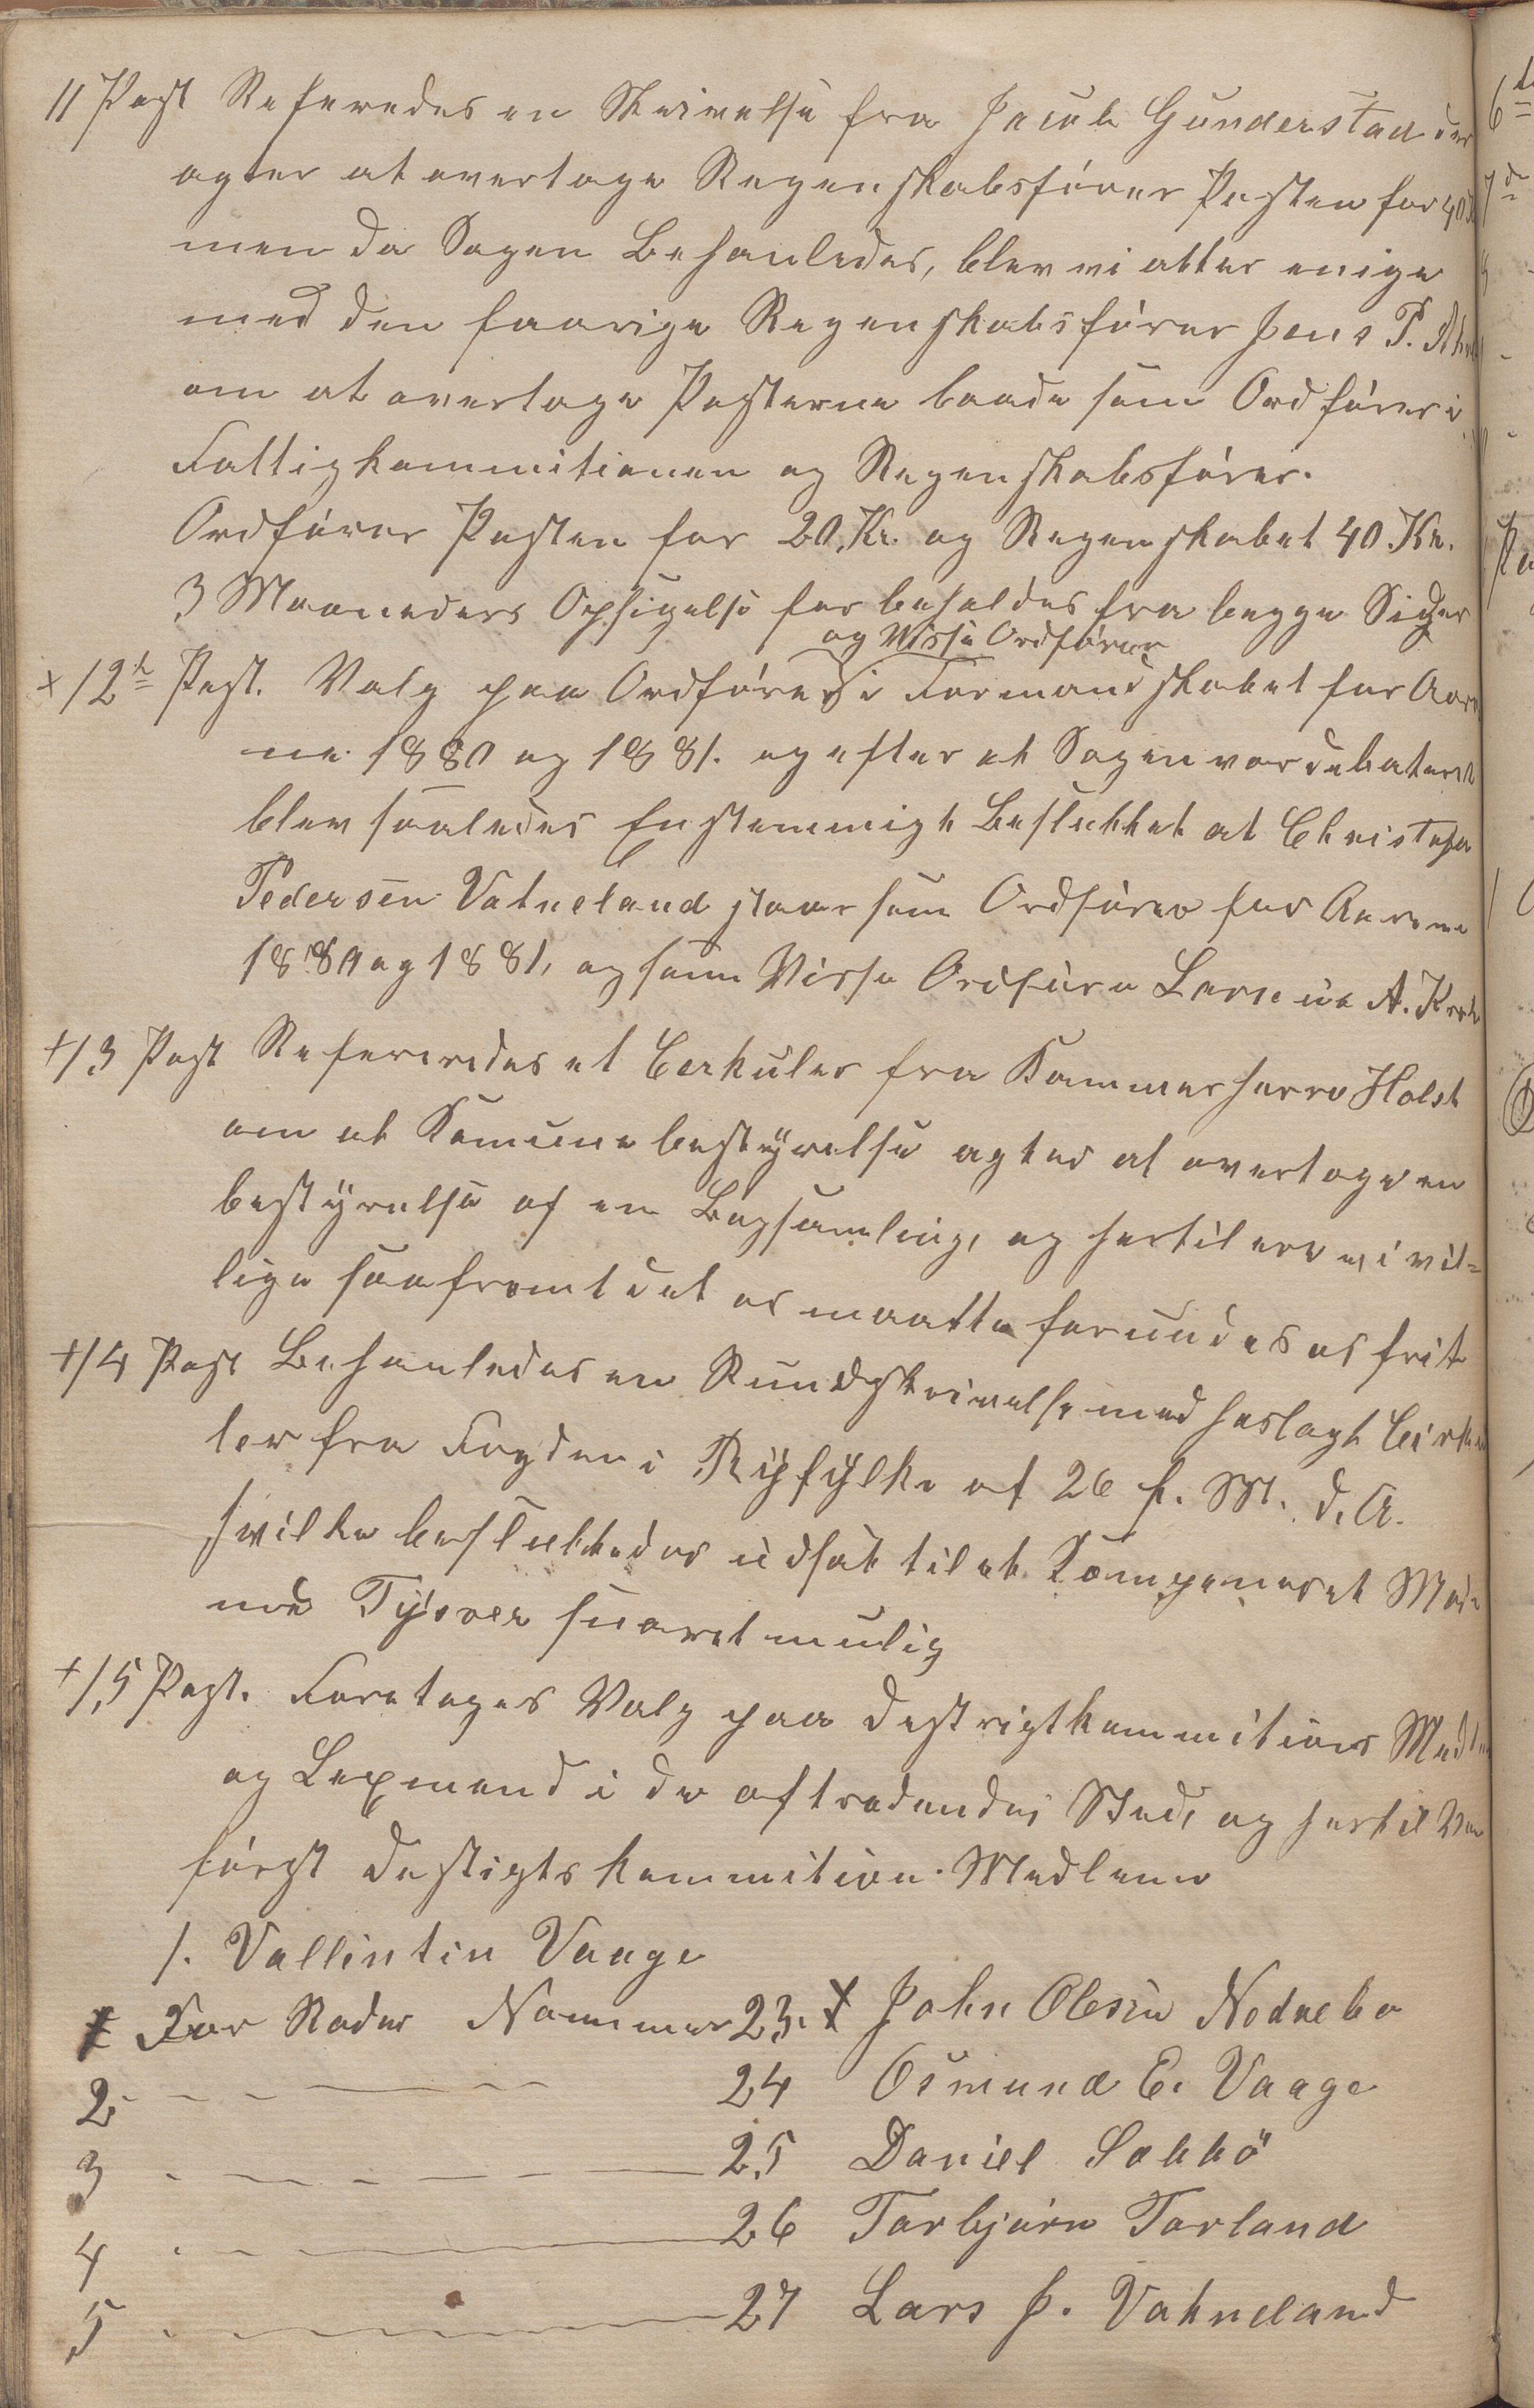 11 Post Referedes en Skrivelse fra Jacob Gunderstad der
agter at overtage Regenskabsfører Posten for 40 K
men da Sagen Behanledes, blev vi atter enige
med den faarige Regenskabsfører Jens P.
om at overtage Posterne baade som Ordfører i
Fattigkommitionen og Regenskabsfører.
Ordfører Posten for 20 Kr. og Regenskabet 40 Kr.
3 Maaneders Opsigelse forbeholdes fra begge Sider
og Visse Ordfører
x 12te Post. Valg paa Ordføre i Formandskabet for Aar
ne 1880 og 1881. og efter at Sagen var debateret
blev saaledes Enstemmigt Besluttet at Christofer
Pedersen Vatneland staar som Ordfører for Aarene
1880 og 1881, og som Visse Ordføre Larse A.
+ 13 Post Refereredes et Cerkulær fra Kammerherre Holst
om at Komunebestyrelse agter at overtage en
bestyrelse af en Bogsamling, og hertil ere vi vil-
lige saafremt det os maatte forundes os frit
+ 14 Post Behanledes en Rundskrivelse med heslagt Cirku
ler fra Fogden i Ryfylke af 26 f. M. d. A.
hvilke besluttedes udsat til et Komponeret Møde
med Tysver snarest mulig
+ 15 Post. Foretoges Valg paa destrigtkommitions Medlem
og Lexmend i de aftredendes Sted, og hertil Var
først destigtskommition Medlem
1. Vallintin Vaage
For Rader Nommer 23. x John Olesen Nodnebo
2 - - - 24 Osmund E. Vaage
3 - - - 25 Daniel Sokkö
4 - - - 26 Torbjørn Torland
5 - - - 27 Lars J. Vatneland